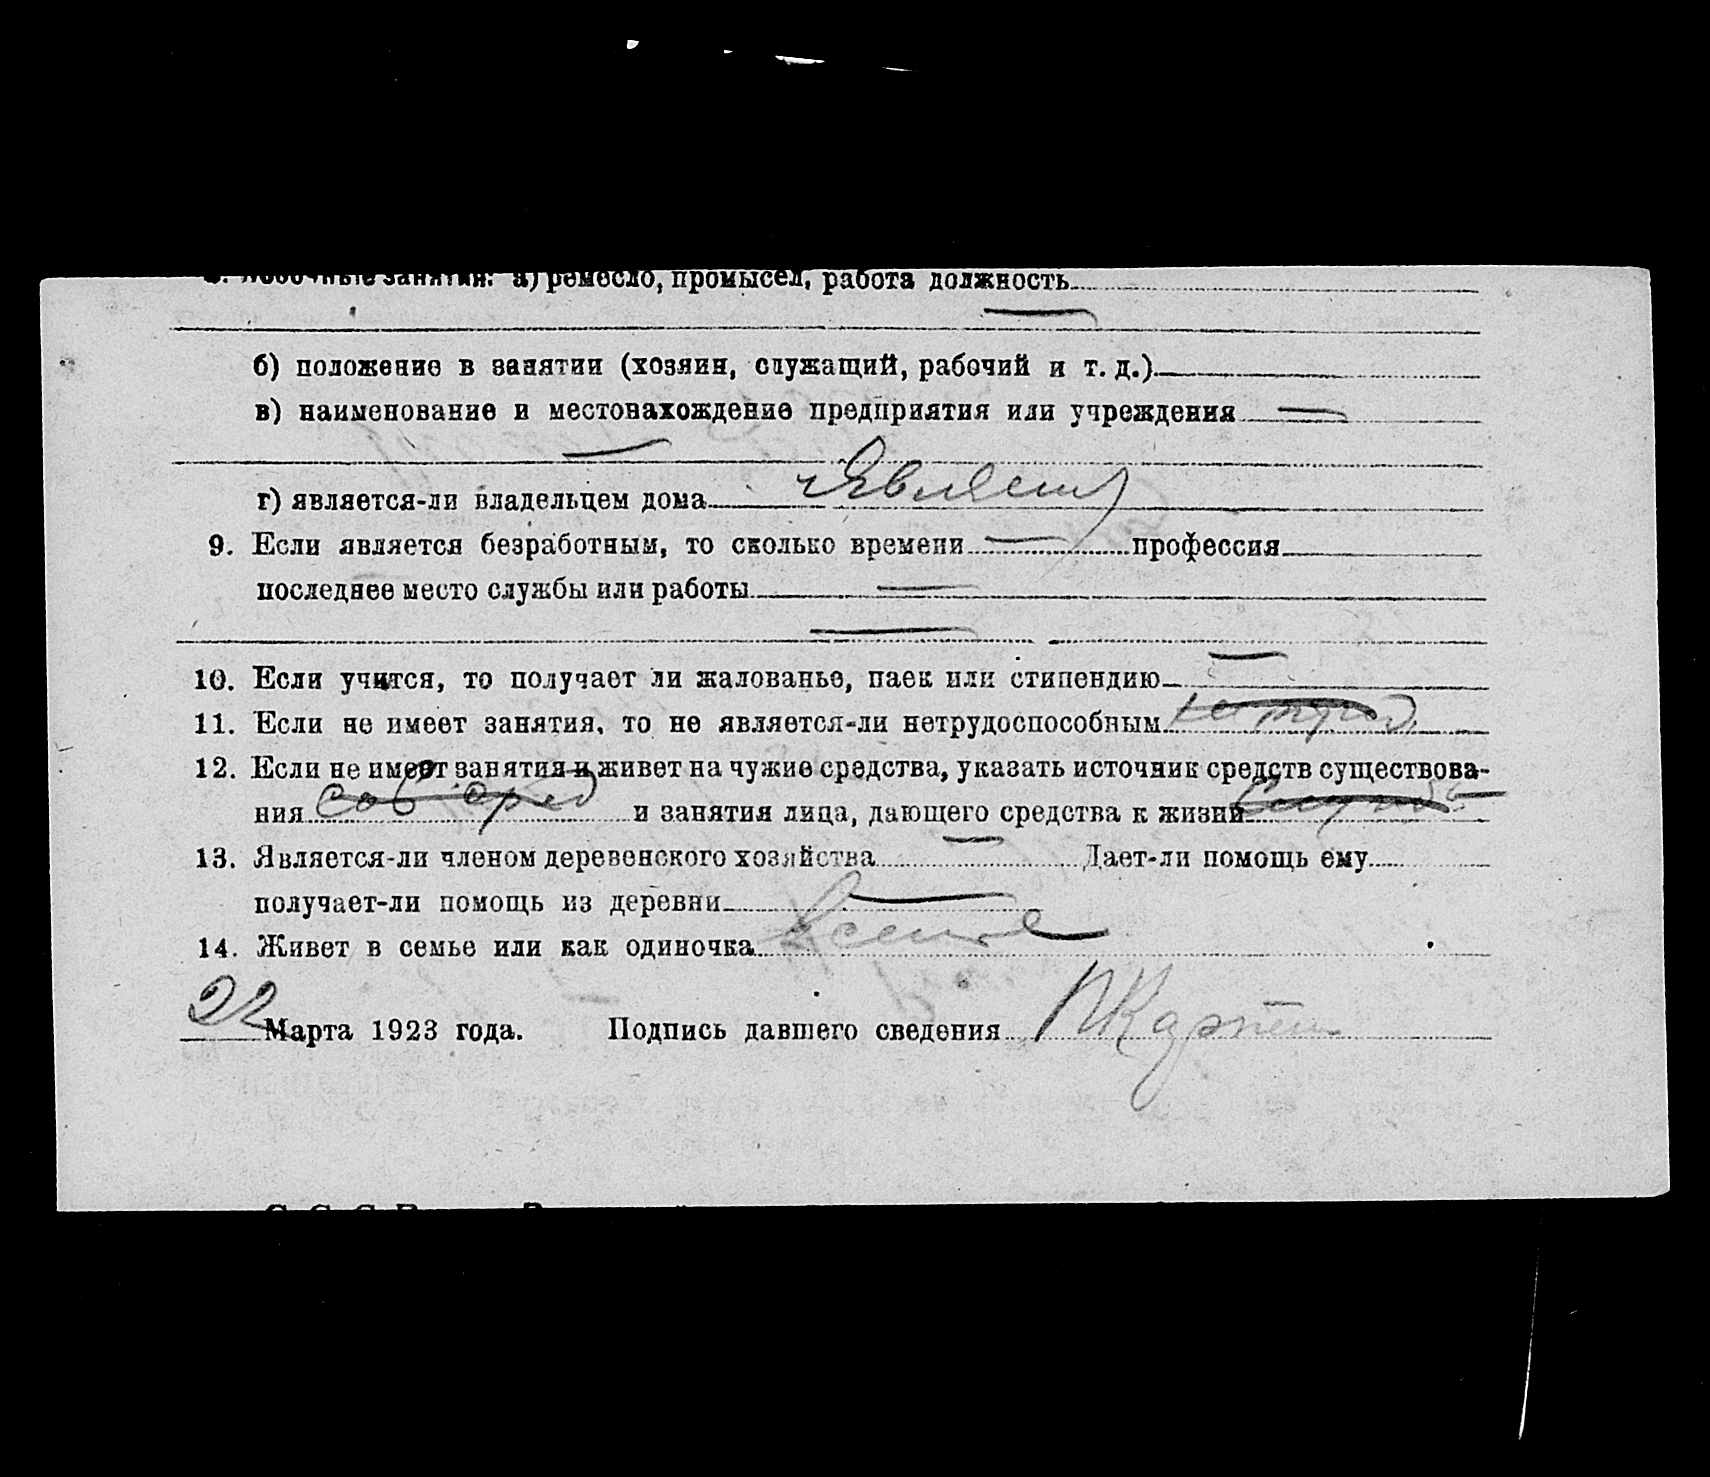 8. Побочные занятия: а) ремесло, промысел, работа должность
б) положение в занятии (хозяин, служащий, рабочий и т. д.)
в) наименование и местонахождение предприятия или учреждения
г) является-ли владельцем дома
9. Если является безработным, то сколько времени профессия
последнее место службы или работы
10. Если учится, то получает ли жалованье, паек или стипендию
11. Если не имеет занятия, то не является-ли нетрудоспособным
12. Если не имеет занятия и живет на чужие средства, указать источник средств существова-
ния и занятия лица, дающего средства к жизни
13. Является-ли членом деревенского хозяйства Дает-ли помощь ему
получает-ли помощь из деревни
14. Живет в семье или как одиночка
22 Марта 1923 года. Подпись давшего сведения